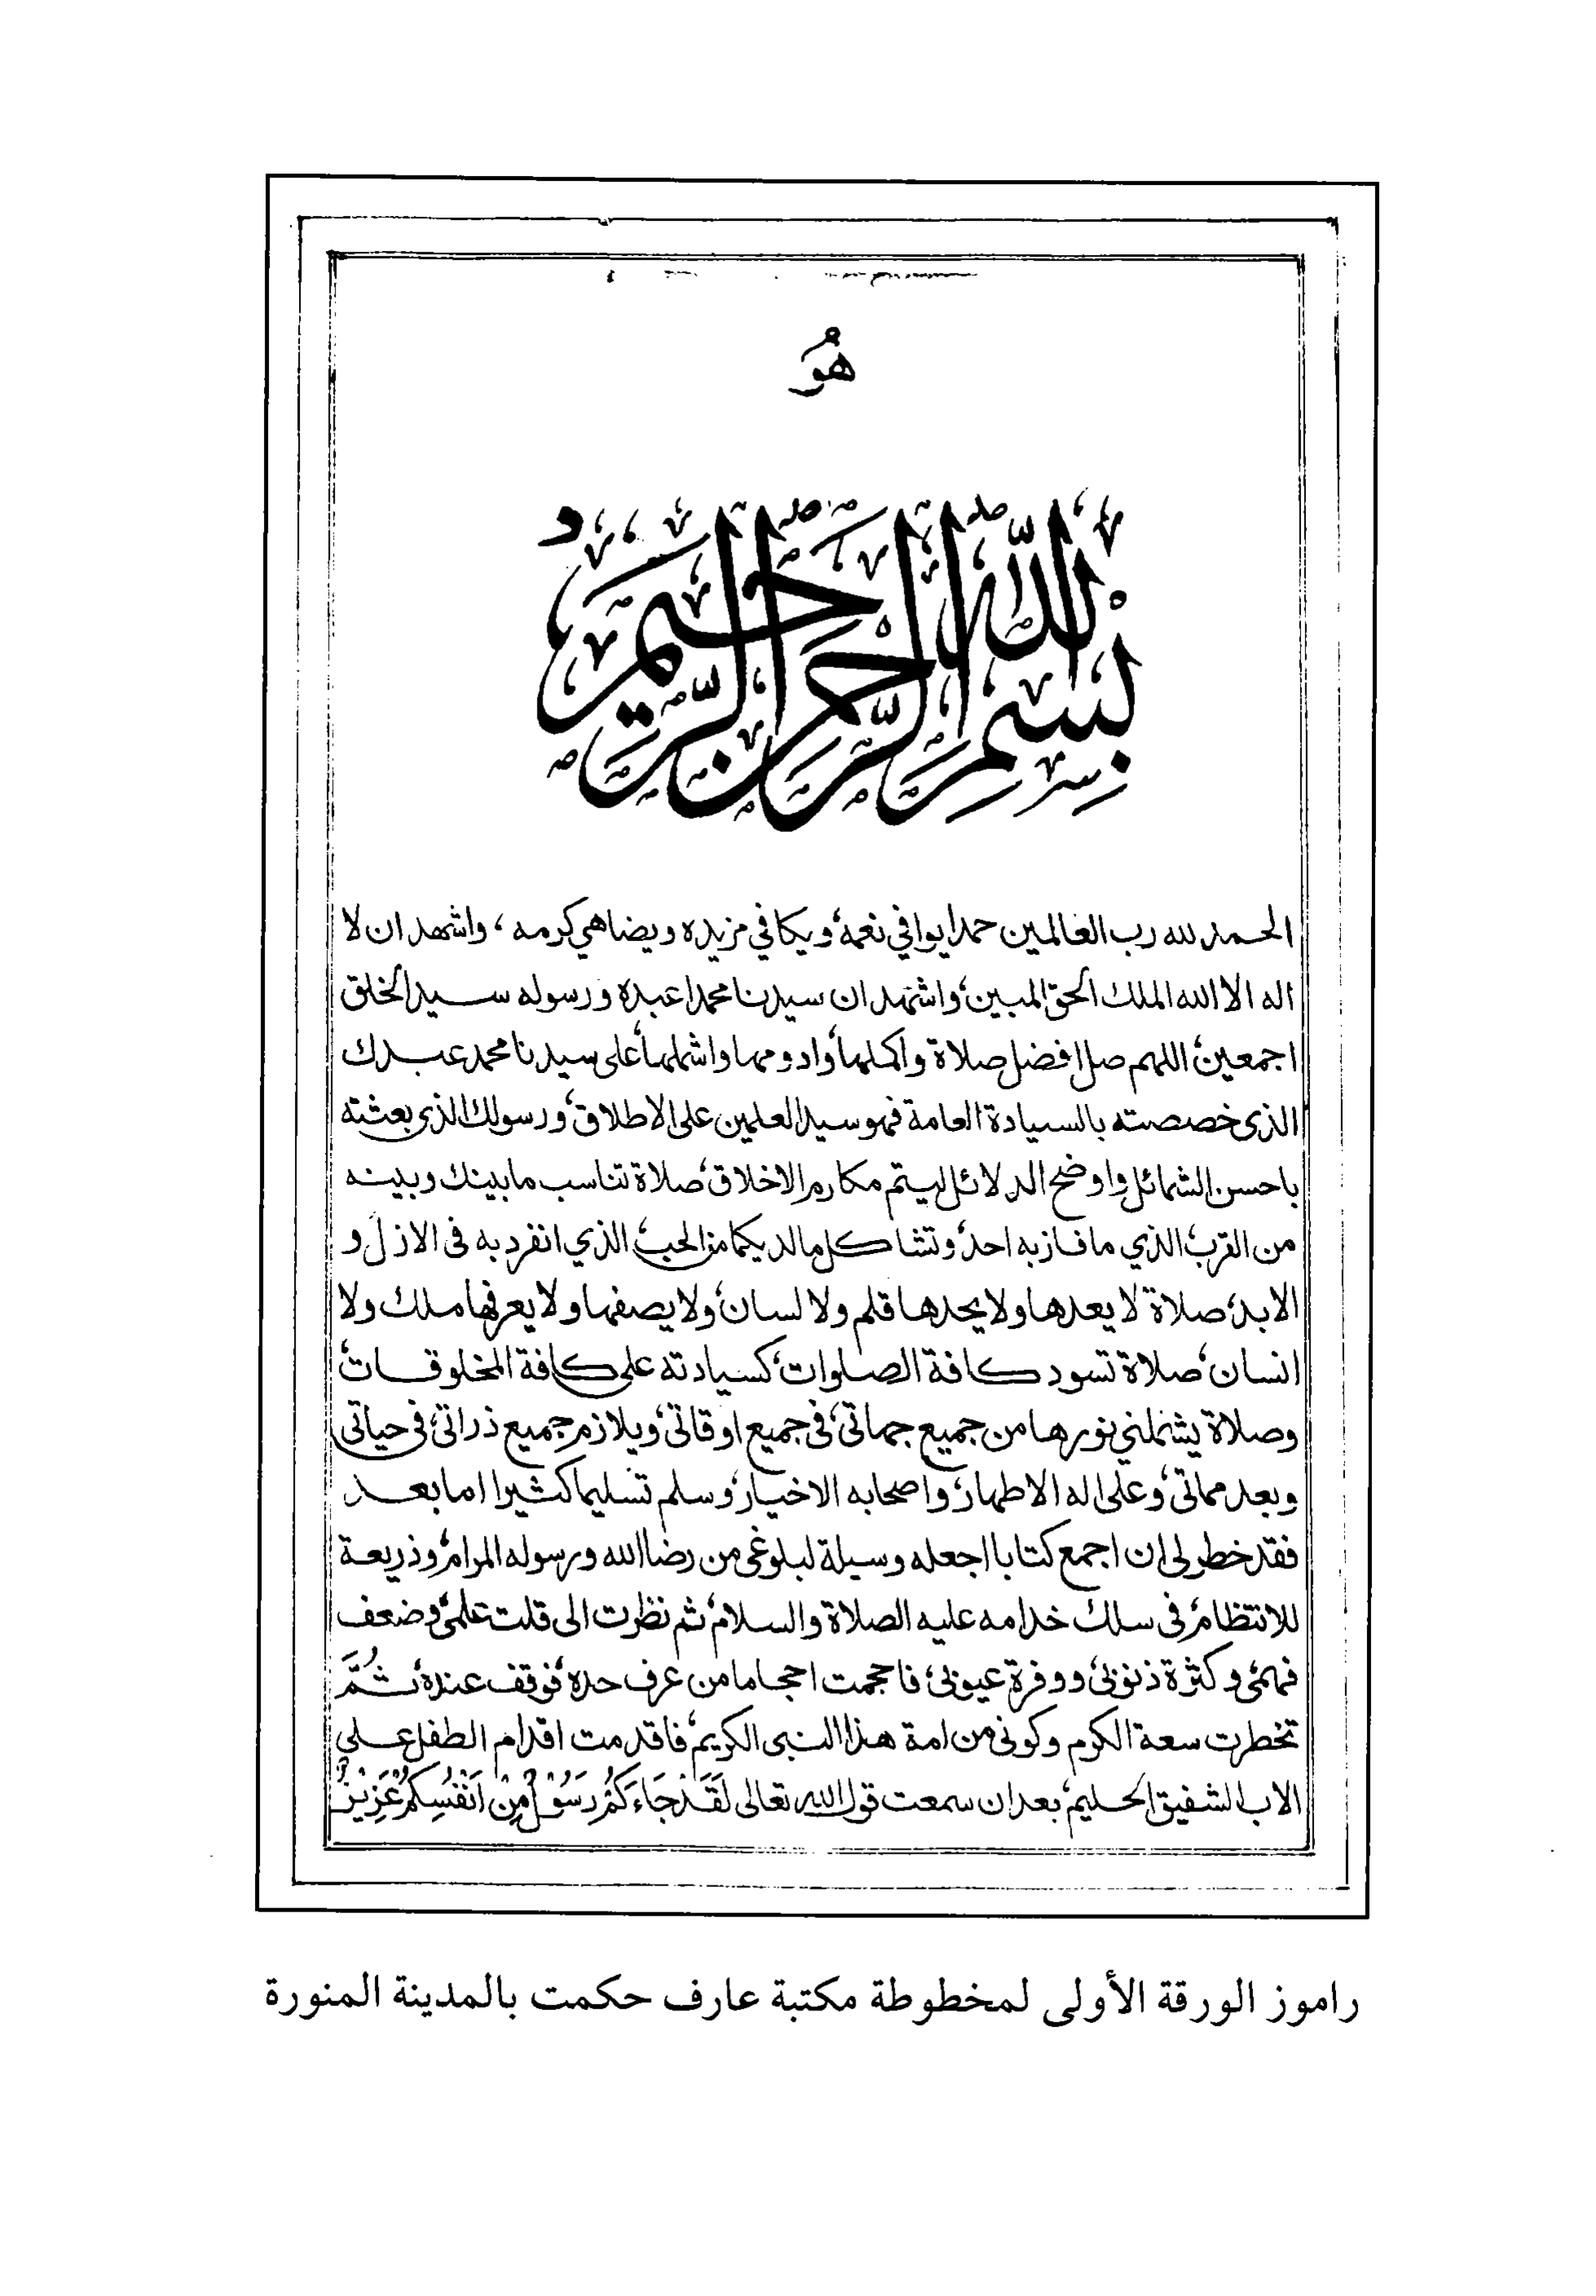 هُوَ
بِسْمِ اللّٰهِ الرَّحْمٰنِ الرَّحِيمِ
الحمد لله رب العالمين حمدا يوافي نعمه، ويكافي مزيده ويضاهي كرمه، واشهد ان لا
اله الا الله الملك الحق المبين، واشهد ان سيدنا محمدا عبده ورسوله سيد الخلق
اجمعين، اللهم صل افضل صلاة واكملها، وادومها واشملها، على سيدنا محمد عبدك
الذى خصصته بالسيادة العامة فهو سيد العلمين على الاطلاق، ورسولك الذى بعثته
باحسن الشمائل واوضح الدلائل ليتم مكارم الاخلاق، صلاة تناسب ما بينك وبينه
من القرب الذي ما فاز به احد، وتشاكل ما لديكما من الحب، الذي انفرد به فى الازل و
الابد، صلاة لا يعدها ولا يحدها قلم ولا لسان، ولا يصفها ولا يعرفها ملك ولا
انسان، صلاة تسود كافة الصلوات، كسيادته على كافة المخلوقات،
وصلاة يشملني نورها من جميع جهاتى، فى جميع اوقاتى، ويلازم جميع ذراتى، فى حياتى
وبعد مماتى، وعلى اله الاطهار، واصحابه الاخيار، وسلم تسليما كثيرا اما بعد
فقد خطر لى ان اجمع كتابا اجعله وسيلة لبلوغى من رضا الله ورسوله المرام، وذريعة
للانتظام، فى سلك خدامه عليه الصلاة والسلام، ثم نظرت الى قلت علمى، وضعف
فهمى، وكثرة ذنوبى، ووفرة عيوبى، فاحجمت احجاما من عرف حده، فوقف عنده، ثُمَّ
تخطرت سعة الكرم وكونى من امة هذا النبى الكريم، فاقدمت اقدام الطفل على
الاب الشفيق الحليم، بعد ان سمعت قول الله تعالى لَقَدْ جَاءَكُمْ رَسُولٌ مِنْ اَنْفُسِكُمْ عَزِيزٌ
راموز الورقة الأولى لمخطوطة مكتبة عارف حكمت بالمدينة المنورة